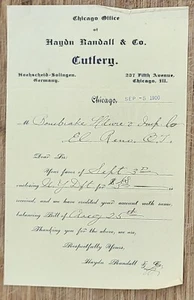 Chicago Office
of
Haydn Randall & Co.
Cutlery.
Remscheid-Solingen, 237 Fifth Avenue,
Germany. Chicago, Ill.
Chicago, SEP -5 1900
M. & Imp. Co
El Reno, O.T.
Dear Sir:
Your favor of Sept 3rd
enclosing N.Y. Dft for
received, and we have credited your account with same
balancing Bill of Aug 25th
Thanking you for the above, we are
Respectfully Yours,
Haydn Randall & Co.